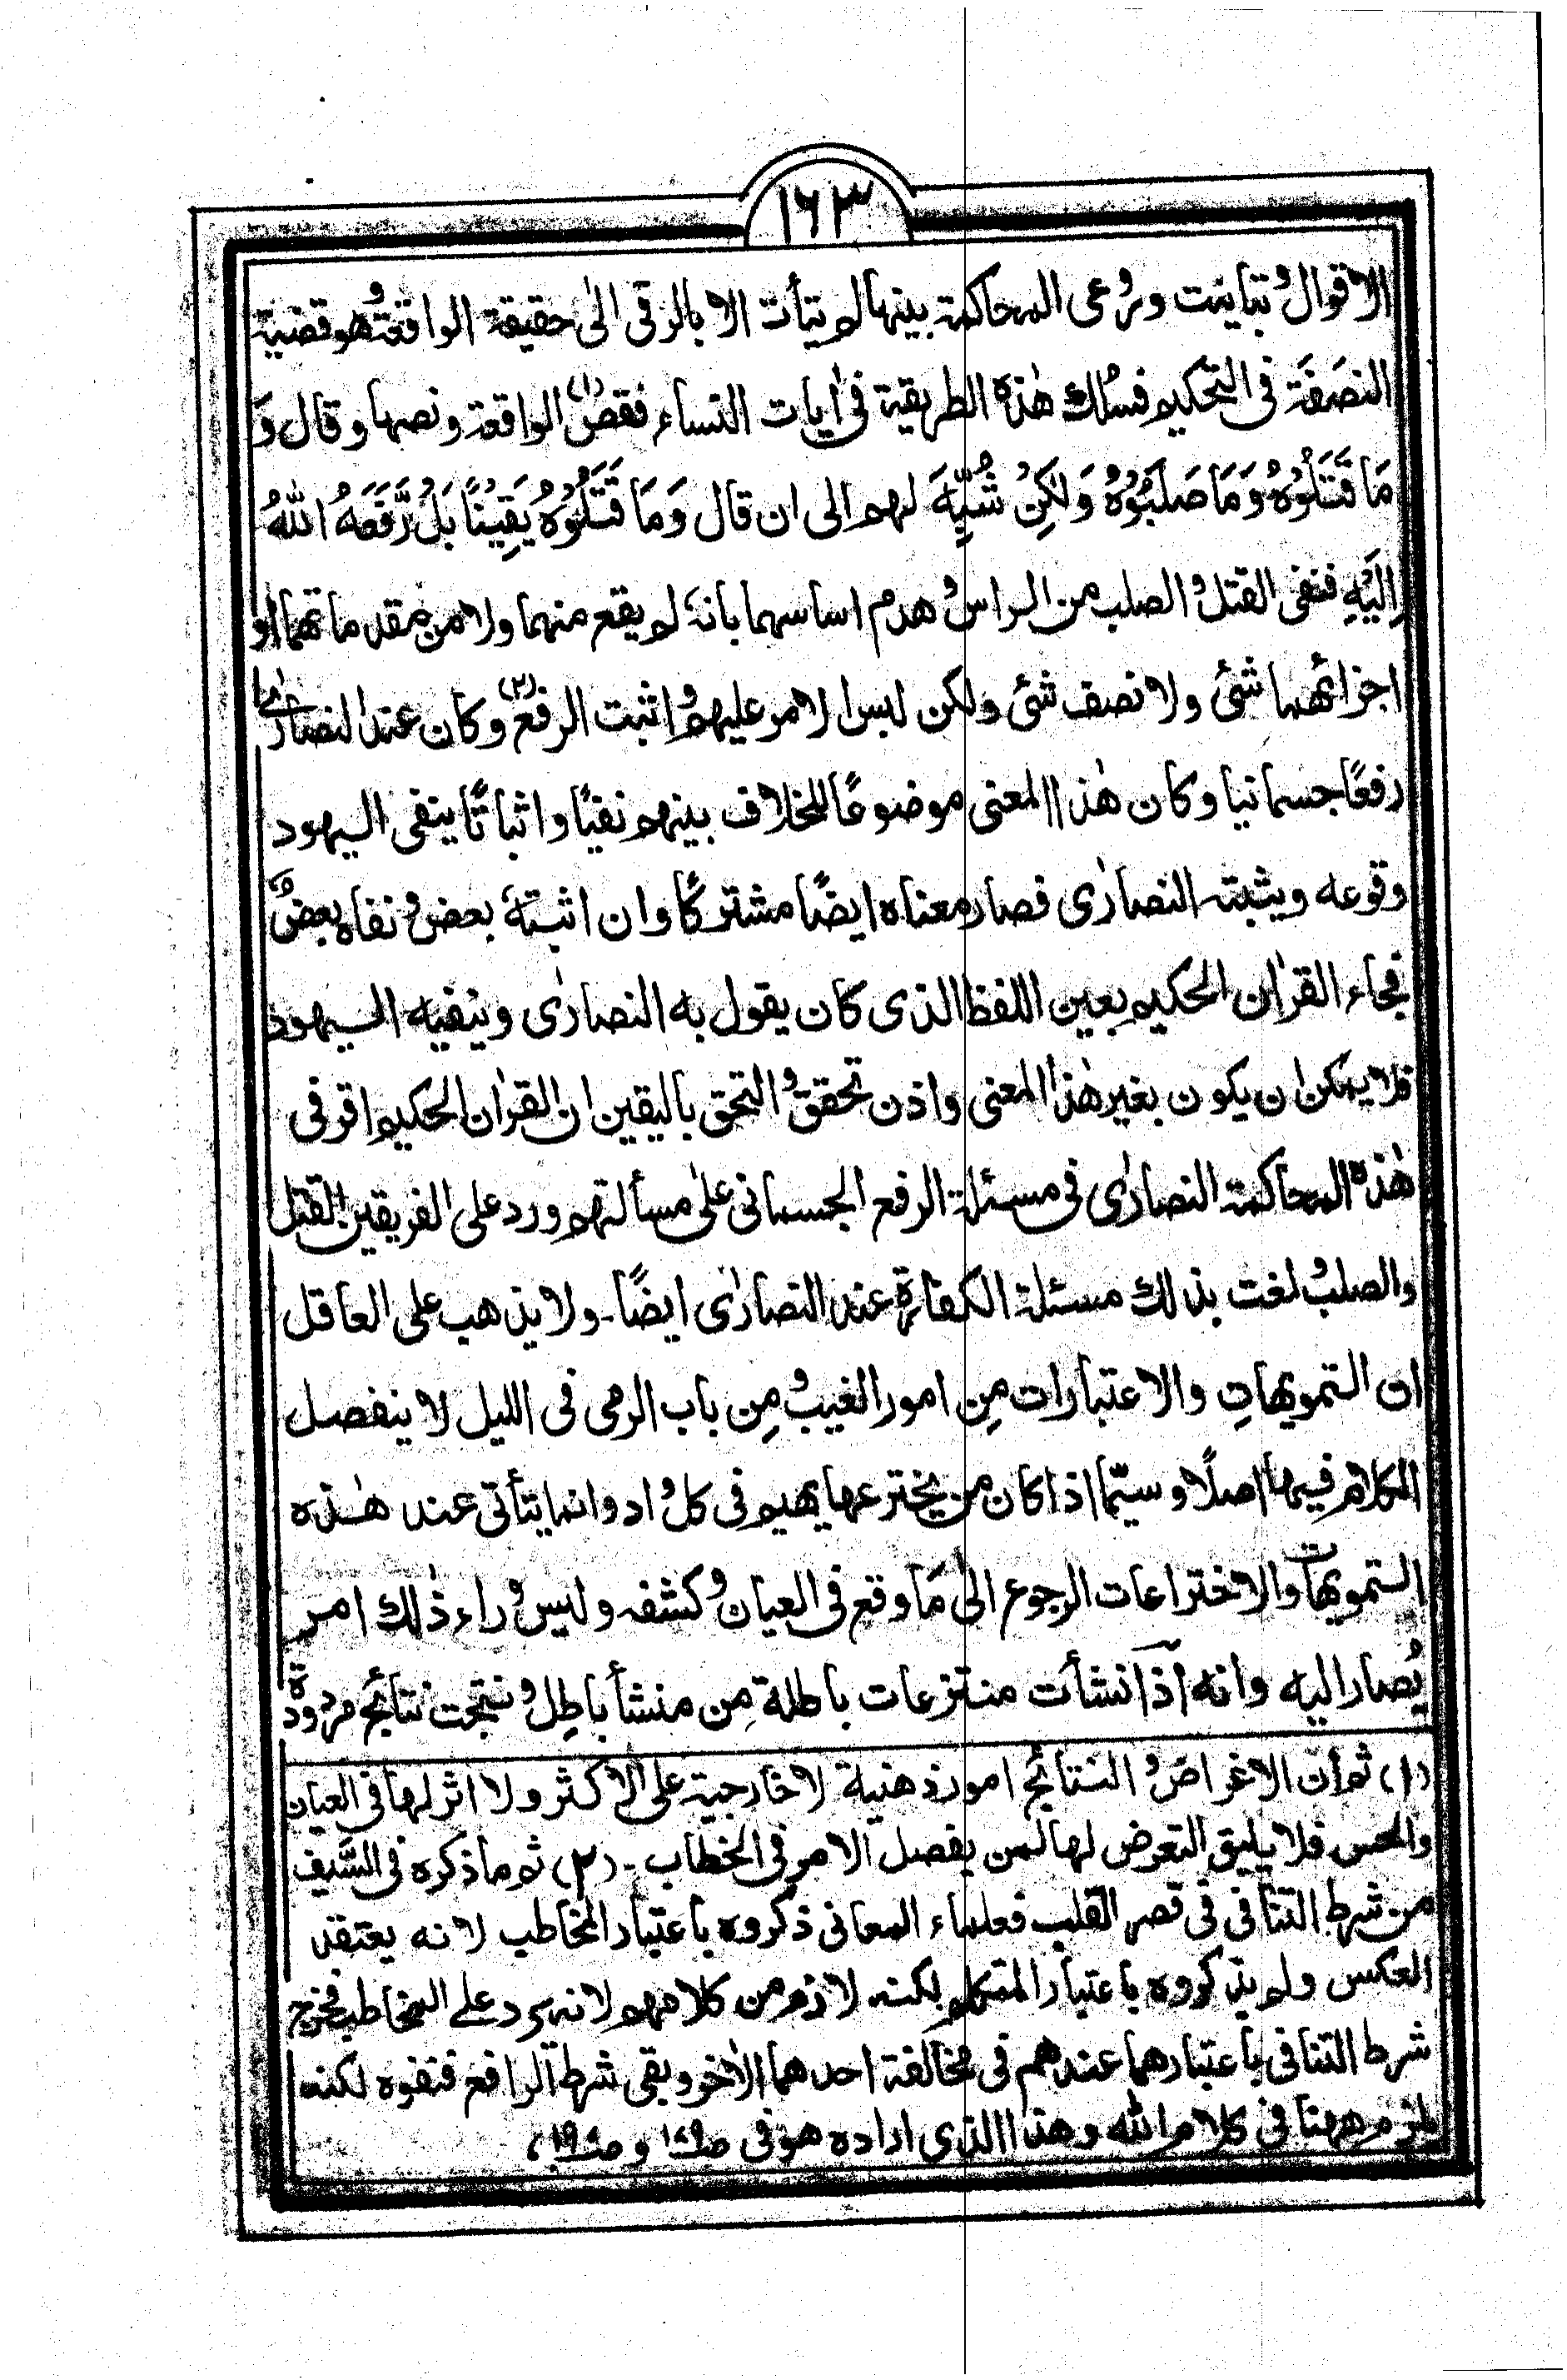 ١٦٣
الاقوال و تباينت و روعى المحاكمة بينها لم يتأت الا بالرقى الىٰ حقيقة الواقعة و هو قضية
النصَفَة فى التحكيم فسُلك هٰذه الطريقة فى اٰيات النساء فقص(١) الواقعة و نصها و قال وَ
مَا قَتَلُوْهُ وَمَا صَلَبُوْهُ وَلٰكِنْ شُبِّهَ لهم الى ان قال وَمَا قَتَلُوْهُ يَقِيْنًا بَلْ رَّفَعَهُ اللّٰهُ
اِلَيْهِ فنفى القتل و الصلب من الراس و هدم اساسهما بانهٗ لم يقع منهما ولا من مقدماتهما او
اجزائهما شئ ولا نصف شئ ولكن لبس الامر عليهم و اثبت الرفع(٢) وكان عند النصارٰى
رفعًا جسمانيا وكان هٰذا المعنى موضوعًا للخلاف بينهم نفيًا واثباتًا ينفى اليهود
وقوعه ويثبته النصارٰى فصار معناه ايضًا مشتركًا وان اثبتهٗ بعض و نفاه بعض
فجاء القراٰن الحكيم بعين اللفظ الذى كان يقول به النصارٰى وينفيه اليهود
فلا يمكن ان يكون بغير هٰذا المعنى واذن تحقق و التحق باليقين ان القراٰن الحكيم اقر فى
هٰذه المحاكمة النصارٰى فى مسئلة الرفع الجسمانى علىٰ مسألتهم ورد على الفريقين القتل
والصلب و لغت بذلك مسئلة الكفارة عند النصارٰى ايضًا ـ ولا يذهب على العاقل
ان التمويهاتِ والاعتبارات مِن امور الغيب و مِن باب الرمى فى الليل لا ينفصل
الكلام فيها اصلًا وسيّما اذا كان من يخترعها يهيم فى كل واد وانما يتأتى عند هٰذه
التمويهات والاختراعات الرجوع الىٰ مَا وقع فى العيان و كشفه وليس وراء ذٰلك امر
يُصار اليه وانه اذا نشأت منتزعات باطلة مِن منشأ باطِل و نتجت نتائج مردودة
(١) ثم أن الاغراض و النتائج امور ذهنية لا خارجية على الاكثر ولا اثر لها فى العيان
والحس فلا يليق التعرض لها لمن يفصل الامر فى الخطاب ـ (٢) ثم ما ذكره فى السَّيف
من شرط التنافى فى قصر القلب فعلماء المعانى ذكروه باعتبار المخاطب لانه يعتقد
العكس ولم يذكروه باعتبار المتكلم لكنه لازم من كلامهم لانه يرد على المخاطب فخرج
شرط التنافى باعتبارهما عندهم فى مخالفة احدهما الاٰخر وبقى شرط الرافع فنفوه لكنه
لزم ههنا فى كلام اللّٰه وهذا الذى اراده هو فى ص١٤٩ و ص١٩،